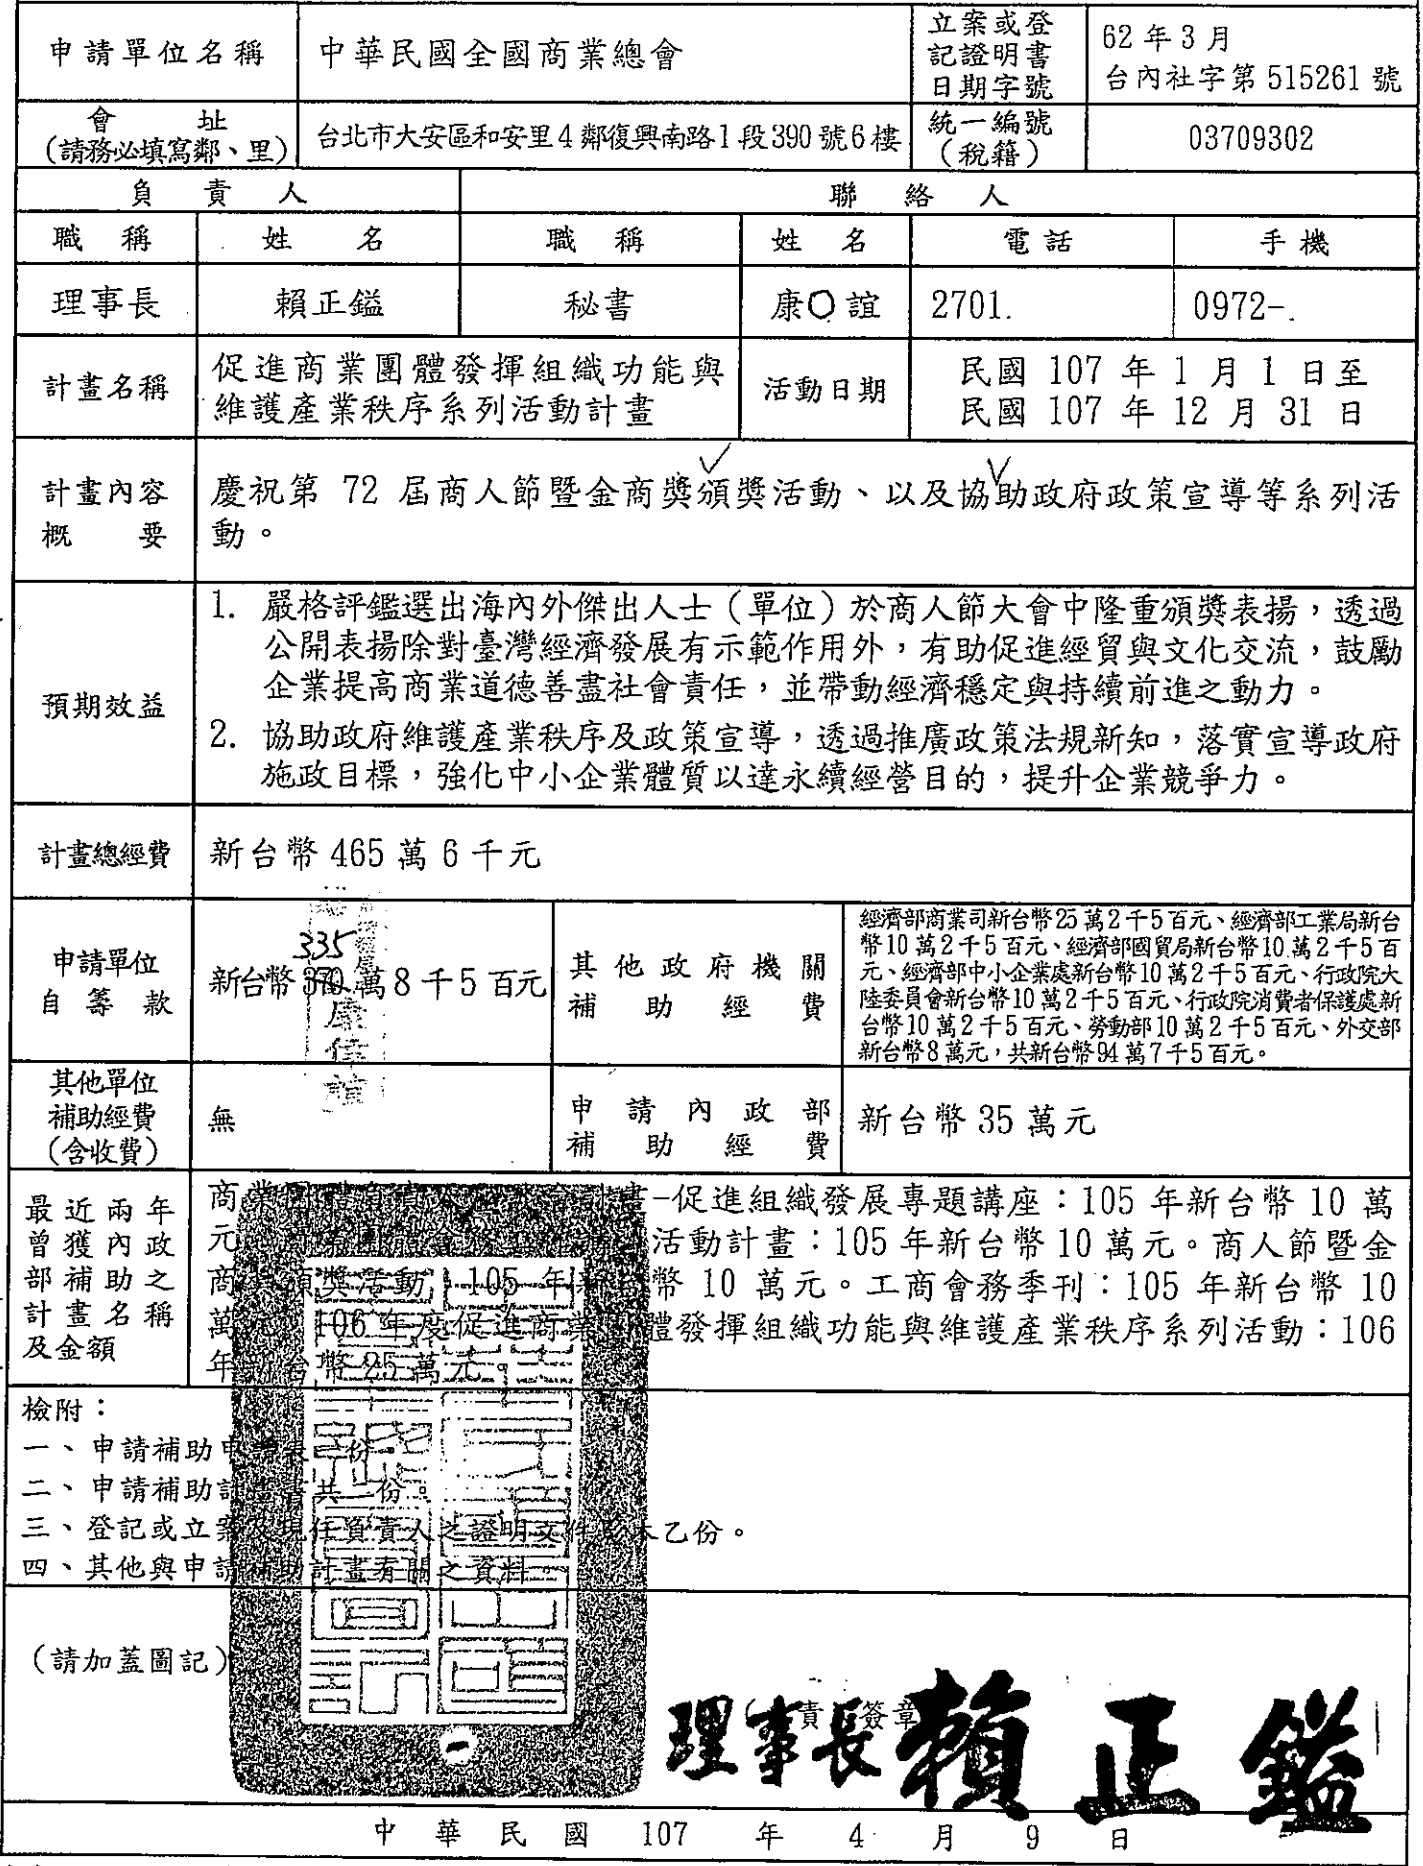 申請單位名稱
中華民國全國商業總會
立案或登
記證明書
日期字號
62年3月
台內社字第515261號
會 址
(請務必填寫鄰、里)
台北市大安區和安里4鄰復興南路1段390號6樓
統一編號
(稅籍)
03709302
負 責 人
聯 絡 人
職 稱
姓 名
職 稱
姓 名
電 話
手 機
理事長
賴正鎰
秘書
康〇誼
2701.
0972-.
計畫名稱
促進商業團體發揮組織功能與
維護產業秩序系列活動計畫
活動日期
民國 107 年 1 月 1 日至
民國 107 年 12 月 31 日
計畫內容
概 要
慶祝第 72 屆商人節暨金商獎頒獎活動、以及協助政府政策宣導等系列活
動。
預期效益
1. 嚴格評鑑選出海內外傑出人士(單位)於商人節大會中隆重頒獎表揚,透過
公開表揚除對臺灣經濟發展有示範作用外,有助促進經貿與文化交流,鼓勵
企業提高商業道德善盡社會責任,並帶動經濟穩定與持續前進之動力。
2. 協助政府維護產業秩序及政策宣導,透過推廣政策法規新知,落實宣導政府
施政目標,強化中小企業體質以達永續經營目的,提升企業競爭力。
計畫總經費
新台幣 465 萬 6 千元
申請單位
自 籌 款
335
新台幣 萬 8 千 5 百元
其他政府機關
補 助 經 費
經濟部商業司新台幣25萬2千5百元、經濟部工業局新台
幣10萬2千5百元、經濟部國貿局新台幣10萬2千5百
元、經濟部中小企業處新台幣10萬2千5百元、行政院大
陸委員會新台幣10萬2千5百元、行政院消費者保護處新
台幣10萬2千5百元、勞動部10萬2千5百元、外交部
新台幣8萬元,共新台幣94萬7千5百元。
其他單位
補助經費
(含收費)
無
申請內政部
補 助 經 費
新台幣 35 萬元
最近兩年
曾獲內政
部補助之
計畫名稱
及金額
商業團體 畫-促進組織發展專題講座:105 年新台幣 10 萬
元 活動計畫:105 年新台幣 10 萬元。商人節暨金
商 頒獎活動:105 年新台幣 10 萬元。工商會務季刊:105 年新台幣 10
萬 106 年度促進商業團體發揮組織功能與維護產業秩序系列活動:106
年新台幣 25 萬元。
檢附:
一、申請補助申請表 份。
二、申請補助計畫書共 份。
三、登記或立案及現任負責人之證明文件影本乙份。
四、其他與申請補助計畫有關之資料。
(請加蓋圖記)
責 簽章
理事長 賴正鎰
中 華 民 國 107 年 4 月 9 日